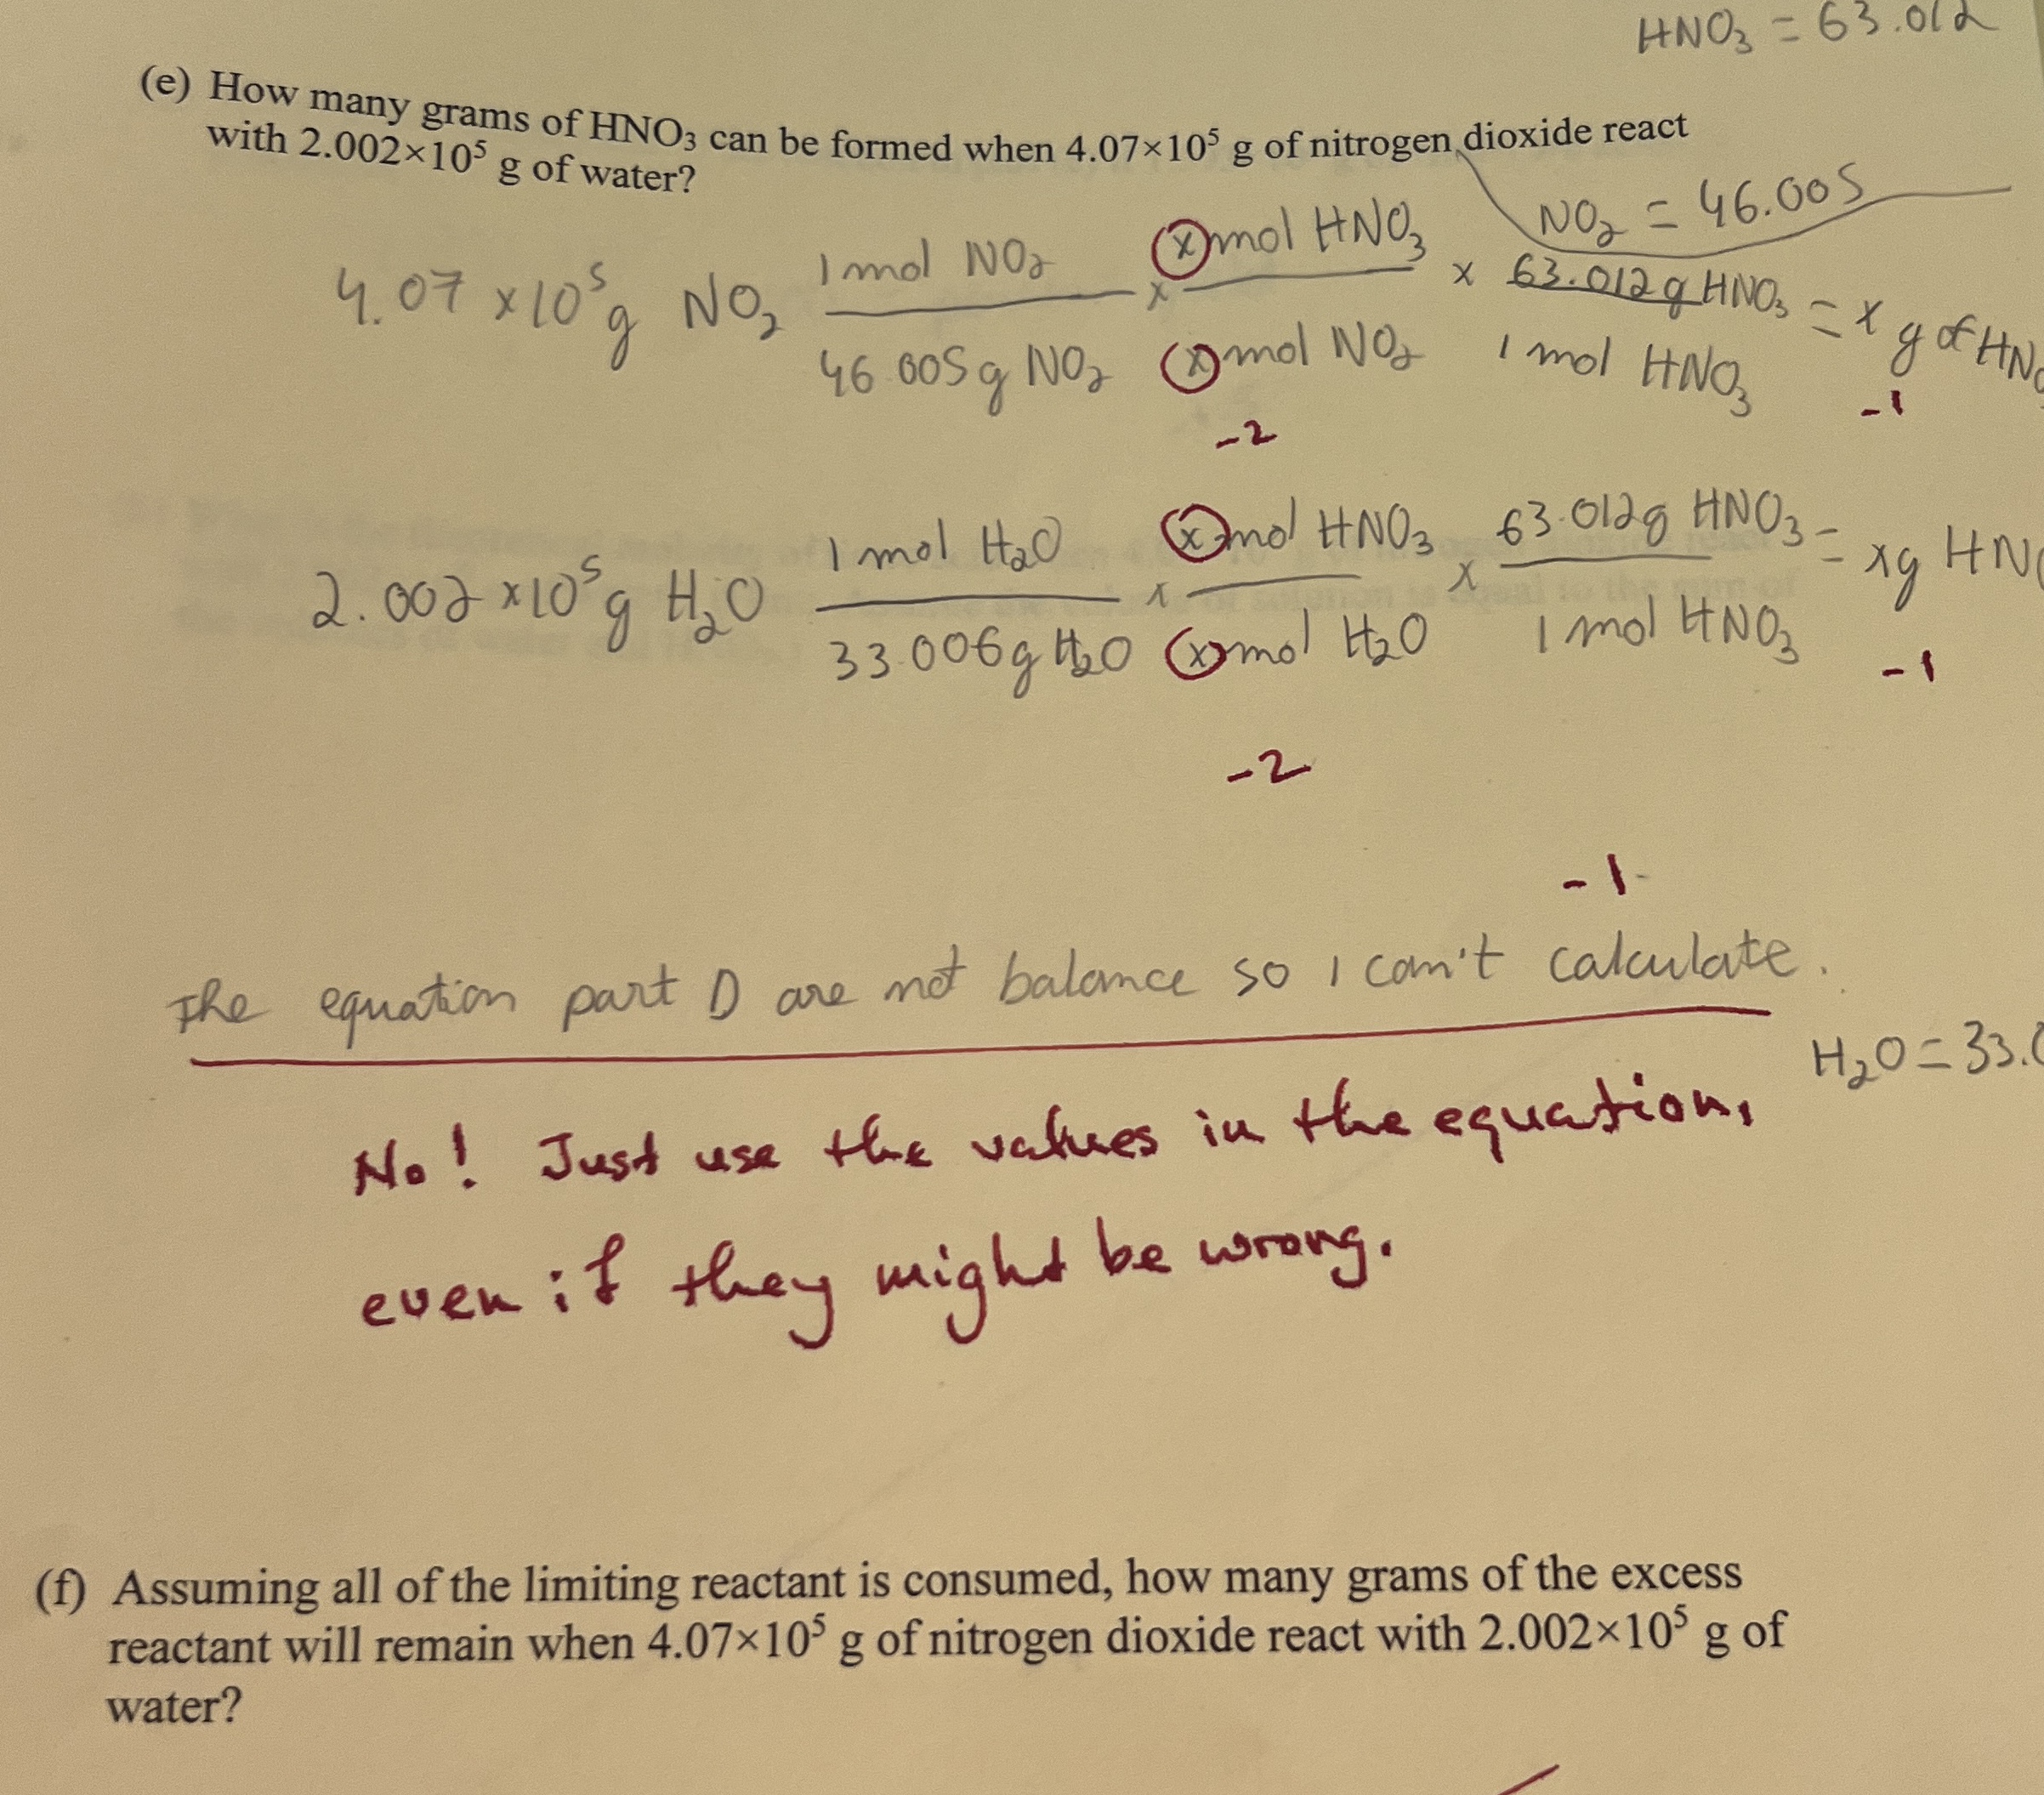 HNO₃ = 63.012
(e) How many grams of HNO₃ can be formed when 4.07×10⁵ g of nitrogen dioxide react
with 2.002×10⁵ g of water?
NO₂ = 46.005
4.07 ×10⁵g NO₂ 1 mol NO₂ x mol HNO₃ x 63.012g HNO₃ = x g of HNO
46.005g NO₂ x x mol NO₂ 1 mol HNO₃
-2 -1
2.002 ×10⁵g H₂O 1 mol H₂O x mol HNO₃ x 63.012g HNO₃ = xg HNO
33.006g H₂O x x mol H₂O 1 mol HNO₃
-1
-2
-1
The equation part D are not balance so I can't calculate.
H₂O = 33.0
No! Just use the values in the equation,
even if they might be wrong.
(f) Assuming all of the limiting reactant is consumed, how many grams of the excess
reactant will remain when 4.07×10⁵ g of nitrogen dioxide react with 2.002×10⁵ g of
water?